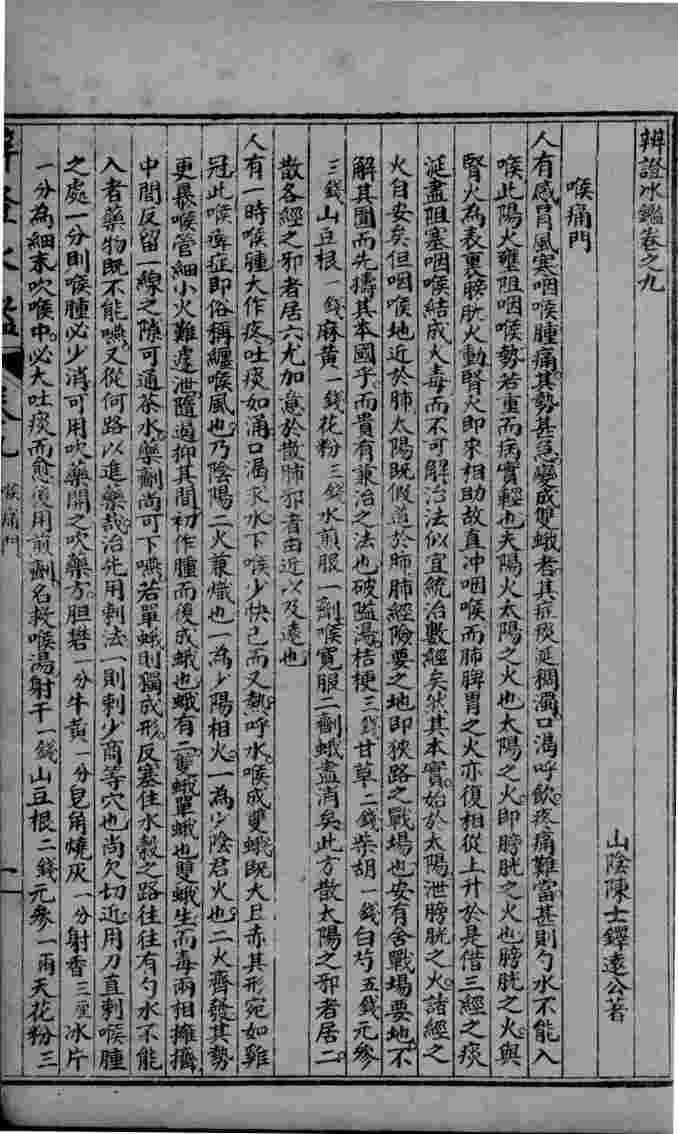 辨證冰鑑卷之九
山陰陳士鐸遠公著
喉痛門
人有感冒風寒咽喉腫痛其勢甚急變成雙蛾者其症痰涎稠濁口渴呼飲疼痛難當甚則勺水不能入
喉此陽火壅阻咽喉勢若重而病實輕也夫陽火太陽之火也太陽之火即膀胱之火也膀胱之火與
腎火為表裏膀胱火動腎火即來相助故直冲咽喉而肺脾胃之火亦復相從上升於是借三經之痰
涎盡阻塞咽喉結成火毒而不可解治法似宜統治數經矣狀其本實始於太陽泄膀胱之火諸經之
火自安矣但咽喉地近於肺太陽既假道於肺肺經險要之地即狹路之戰場也安有舍戰場要地不
解其圍而先擣其本國乎而貴有兼治之法也破隘湯桔梗三錢甘草二錢柴胡一錢白芍五錢元參
三錢山豆根一錢麻黃一錢花粉三錢水煎服一劑喉寬服二劑蛾盡消矣此方散太陽之邪者居二
散各經之邪者居六尤加意於散肺邪者由近以及遠也
人有一時喉腫大作疼吐痰如涌口渴求水下喉少快已而又熱呼水喉成雙蛾既大且赤其形宛如雞
冠此喉痺症即俗稱纏喉風也乃陰陽二火兼熾也一為少陽相火一為少陰君火也二火齊發其勢
更暴喉管細小火難遽泄隨遏抑其間初作腫而後成蛾也蛾有二雙蛾單蛾也雙蛾生而毒兩相擁擠
中間反留一線之隙可通茶水藥劑尚可下嚥若單蛾則獨成形反塞住水穀之路往往有勺水不能
入者藥物既不能嚥又從何路以進藥哉治先用刺法一則刺少商等穴也尚欠切近用刀直刺喉腫
之處一分則喉腫必少消可用吹藥開之吹藥方胆礬一分牛黃一分皂角燒灰一分射香三厘冰片
一分為細末吹喉中必大吐痰而愈後用煎劑名救喉湯射干一錢山豆根二錢元參一兩天花粉三
喉痛門
一